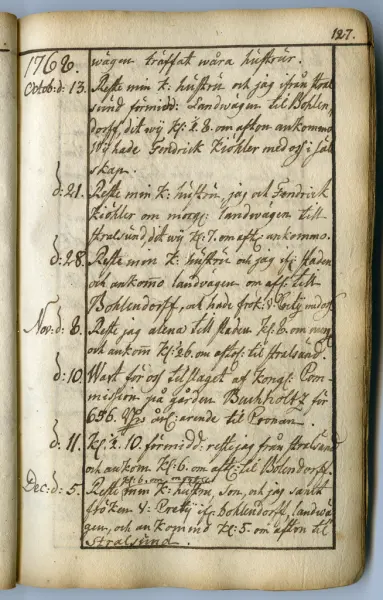 127.
wägen träffat wåra hustrur.
1768.
Octob: d: 13. Reste min k: hustru och jag ifrån Stral
sund förmidd: Landwägen til Bohlen,
dorff, dit wij Kl: ½ 8. om afton ankommo
Wij hade Fendrick Kiöhler med oss i säl
skap.
d: 21. Reste min k: hustru, jag och Fendrick
Kiöhler om morg: landwägen till
Stralsund dit wij Kl: 7. om aft: ankommo.
d: 28. Reste min k: hustru och jag staden
och ankommo landwägen om aft: till
Bohlendorff, och hade frök: v: Pretij med oss
Nov: d: 8. Reste jag alena till staden Kl: 6. om
och ankom Kl: ½ 6. om aftof: til Stralsund.
d: 10. Wart för oss tilslaget af Kongl: Com-
mission på gården Buchholtz för
656. arende til Pronan.
d: 11. Kl: ½ 10. förmidd: reste jag från Stralsund
och ankom Kl: 6. om aft: til Bolendorff.
Kl: 6. om
Dec: d: 5. Reste min k: hustru, son, och jag samt
fröken v: Pretij ifr: Bohlendorff, landwä
gen, och ankommo Kl: 5. om afton til
Stralsund.